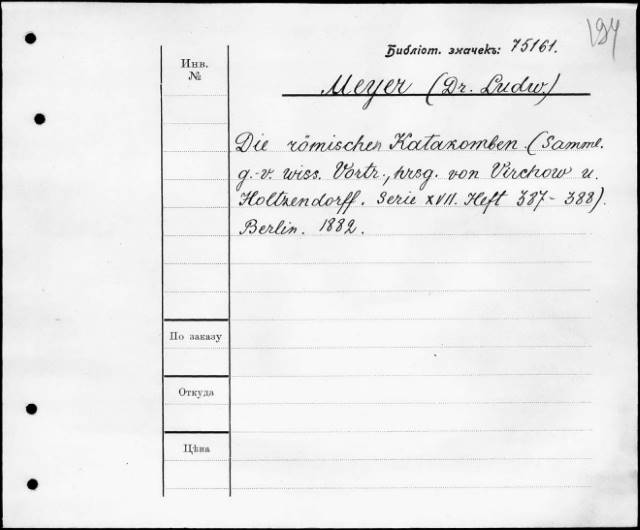 194
Библіот. значекъ: 75161.
Инв.
№
Meyer (Dr. Ludw.)
Die römischen Katakomben. (Samml.
g.-v. wiss. Vortr., hrsg. von Virchow u.
Holtzendorff. Serie XVII. Heft 387-388).
Berlin. 1882.
По заказу
Откуда
Цѣна